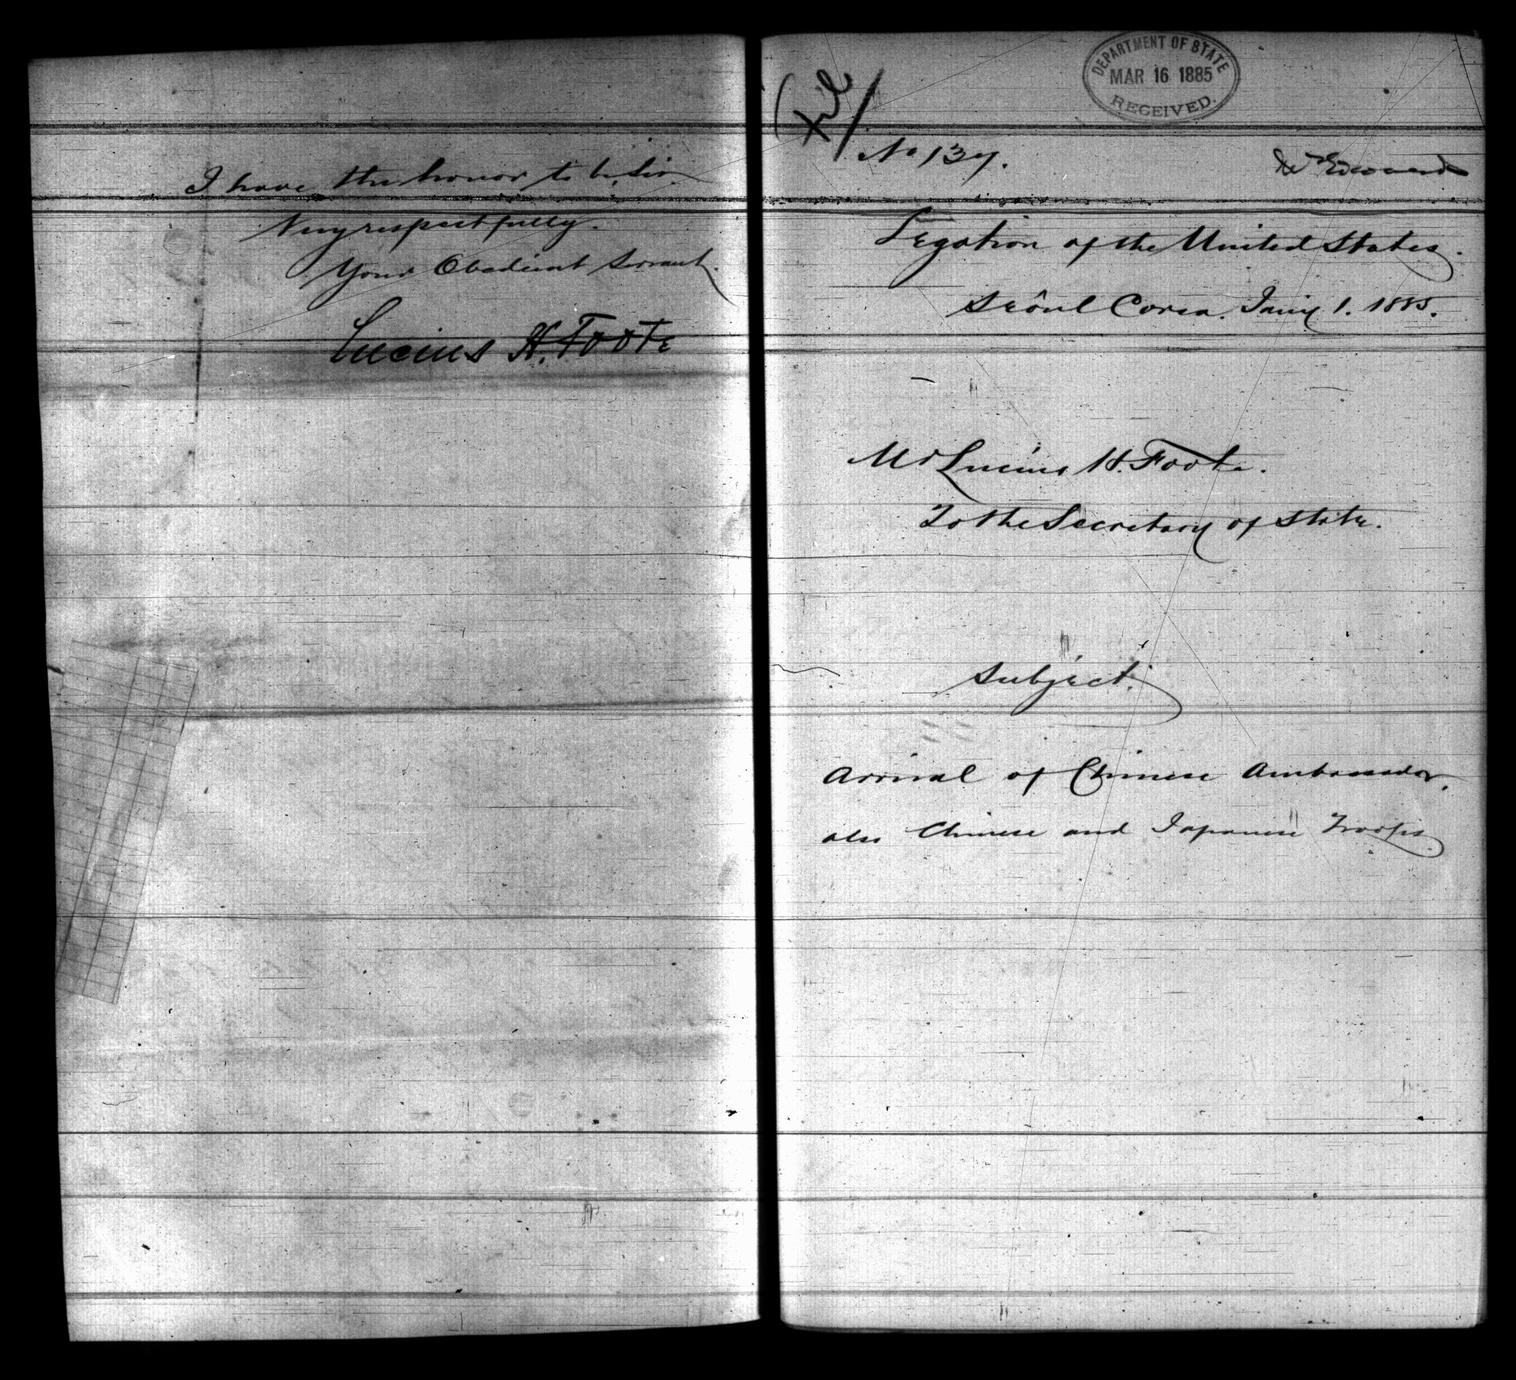 I have the honor to be, Sir
Very respectfully.
Your Obedient Servant.
Lucius H. Foote
DEPARTMENT OF STATE
MAR 16 1885
RECEIVED.
File
No 137.
Legation of the United States.
Seôul Corea. Jan'y 1. 1885.
Mr Lucius H. Foote.
To the Secretary of State.
Subject.
Arrival of Chinese Ambassador,
also Chinese and Japanese Troops.